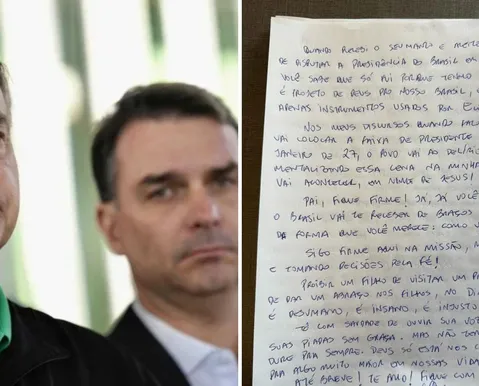 QUANDO RECEBI O SEU MANTO E
DE DISPUTAR A PRESIDÊNCIA DO BRASIL EM
VOCÊ SABE QUE SÓ FUI PORQUE TENHO
É PROJETO DE DEUS PRO NOSSO BRASIL,
APENAS INSTRUMENTOS USADOS POR
NOS MEUS DISCURSOS QUANDO
VAI COLOCAR A FAIXA DE PRESIDENTE
JANEIRO DE 27, O POVO VAI AO
MENTALIZANDO ESSA CENA NA MINHA
VAI ACONTECER, EM NOME DE JESUS!
PAI, FIQUE FIRME! JÁ, JÁ VOCÊ
O BRASIL VAI TE RECEBER DE BRAÇOS
DA FORMA QUE VOCÊ MERECE: COMO
SIGO FIRME AQUI NA MISSÃO,
E TOMANDO DECISÕES PELA FÉ!
PROIBIR UM FILHO DE VISITAR UM
DE DAR UM ABRAÇO NOS FILHOS, NO
É DESUMANO, É INSANO, É INJUSTO
COM SAUDADE DE OUVIR SUA
SUAS PIADAS SEM GRAÇA. MAS NÃO
DURE PRA SEMPRE. DEUS SÓ ESTÁ NOS
PRA ALGO MUITO MAIOR EM NOSSAS
ATÉ BREVE! TE AMO! FIQUE COM